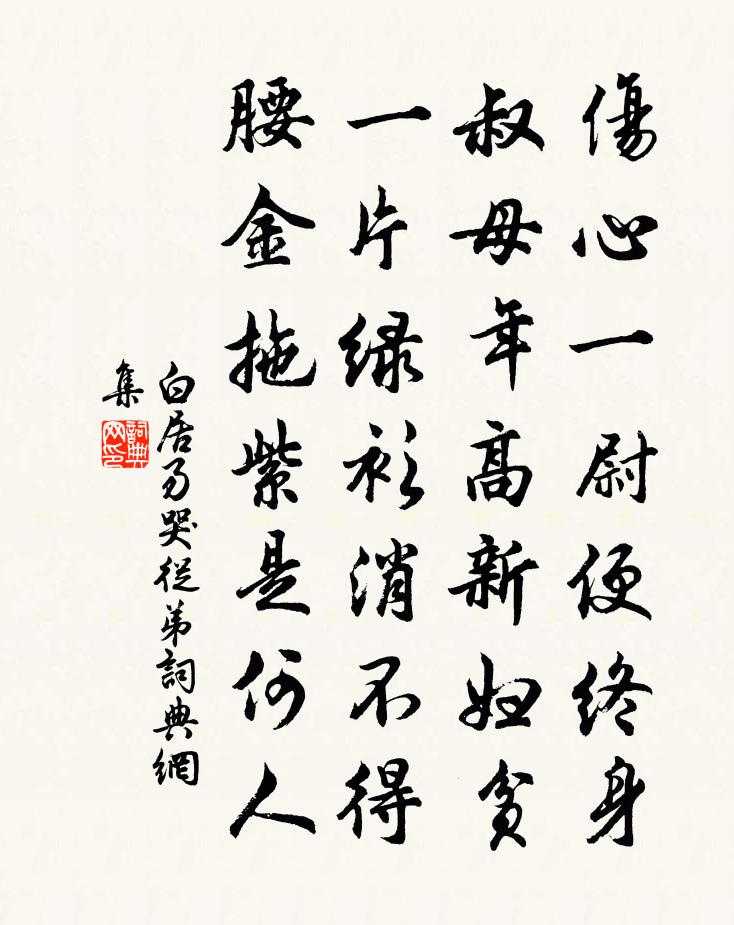 傷心一尉便終身
叔母年高新婦貧
一片緑衫消不得
腰金拖紫是何人
白居易哭從弟詞典網
集
詞典
网印